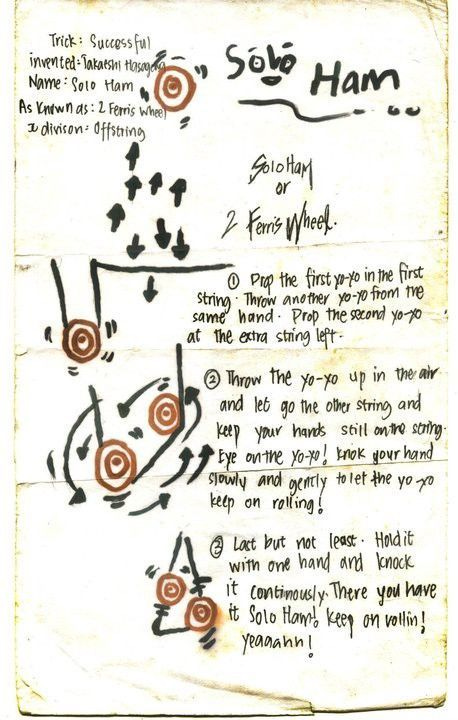 Trick: Successful
invented: Takaeshi Hasagena
Name: Solo Ham
As Known as: 2 Ferris Wheel
X divison: Offstring
Solo
Ham
Solo Ham
or
2 Ferris Wheel.
① Drop the first yo-yo in the first
string. Throw another yo-yo from the
same hand. Drop the second yo-yo
at the extra string left.
② Throw the yo-yo up in the air
and let go the other string and
keep your hands still on the string.
Eye on the yo-yo! knok your hand
slowly and gently to let the yo-yo
keep on rolling!
③ Last but not least. Hold it
with one hand and knock
it continously. There you have
it Solo Ham! keep on rollin!
Yeaaahh!